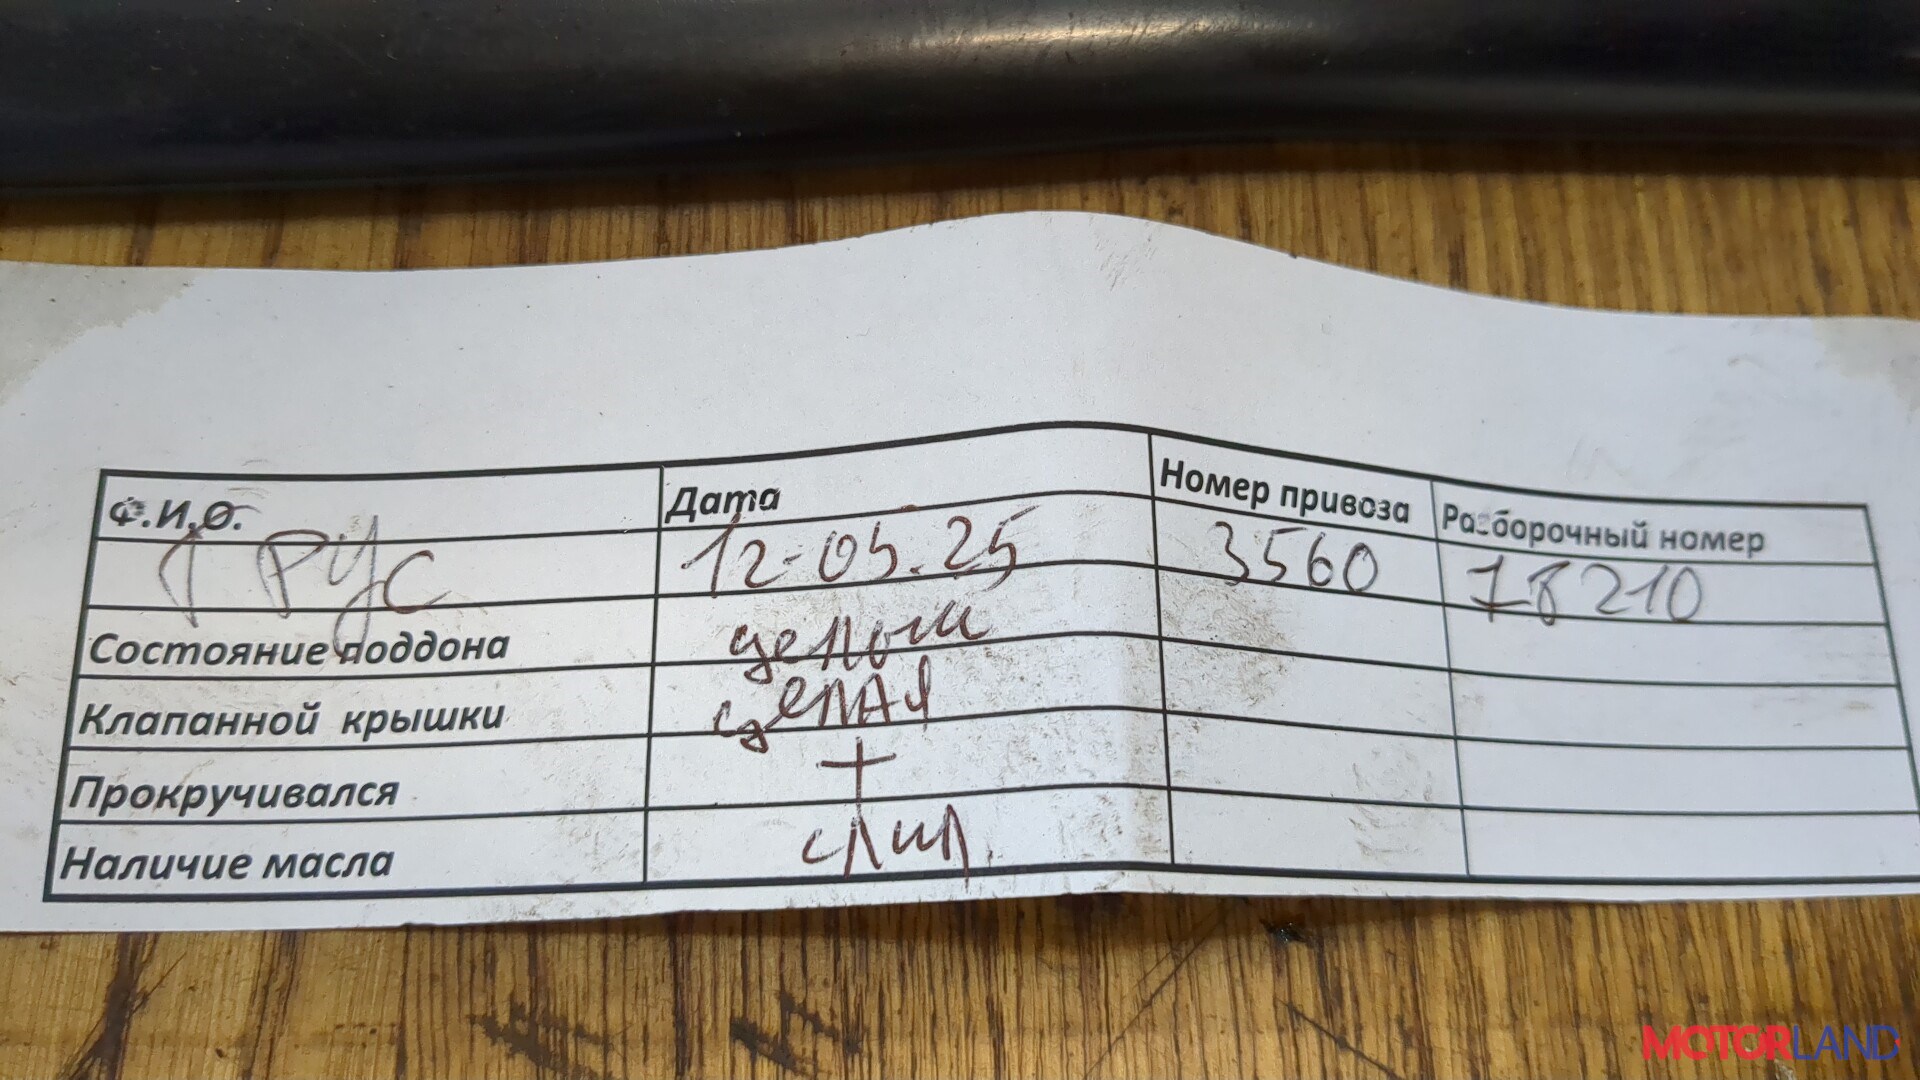 Ф.И.О. Дата Номер привоза Разборочный номер
ТРУС 12-05.25 3560 18210
Состояние поддона целый
Клапанной крышки целая
Прокручивался +
Наличие масла слил
MOTORLAND